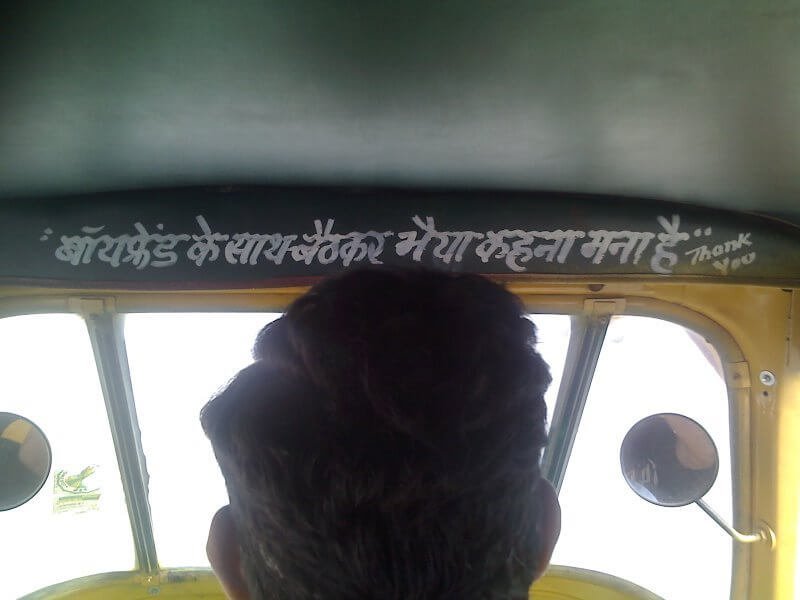 "बॉयफ्रेंड के साथ बैठकर भैया कहना मना है"
Thank
You